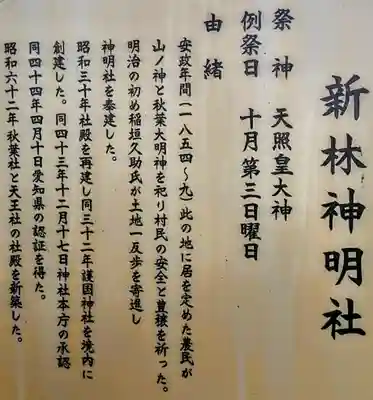 新林神明社
祭神 天照皇大神
例祭日 十月第三日曜日
由緒
安政年間(一八五四〜九)此の地に居を定めた農民が
山ノ神と秋葉大明神を祀り村民の安全と豊穣を祈った。
明治の初め稲垣久助氏が土地一反歩を寄進し
神明社を奉建した。
昭和三十年社殿を再建し同三十二年護国神社を境内に
創建した。同四十三年十二月十七日神社本庁の承認
同四十四年四月十日愛知県の認証を得た。
昭和六十二年秋葉社と天王社の社殿を新築した。